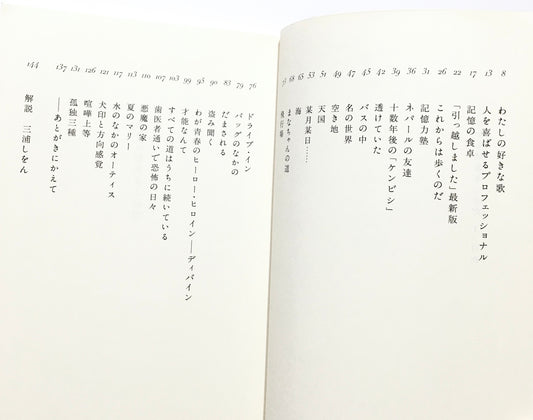 わたしの好きな歌 8
人を喜ばせるプロフェッショナル 13
記憶の食卓 17
「引っ越しました」最新版 22
これからは歩くのだ 26
記憶力塾 31
ネパールの友達 36
十数年後の「ケンピシ」 39
透けていた 42
バスの中 45
名の世界 47
空き地 49
天国 51
某月某日…… 53
海 65
まなちゃんの道 68
飛行場
ドライブ・イン 76
バッグのなかの 79
だまくられる 83
盗み聞く 90
わが青春のヒーロー・ヒロイン――ディバイン 95
才能なんて 99
すべての道はうちに続いている 103
歯医者通いで恐怖の日々 107
悪魔の家 110
夏のマリー 113
水のなかのオーティス 117
犬印と方向感覚 121
喧嘩上等 126
孤独三種 131
――あとがきにかえて 137
解説 三浦しをん 144